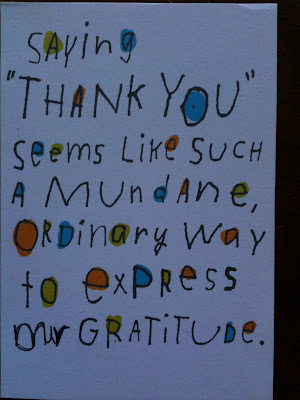 SAying
"THANK YOU"
seems Like SUCH
A MUndANE,
ORDinAry WAY
to exPRess
our GRATiTUDe.